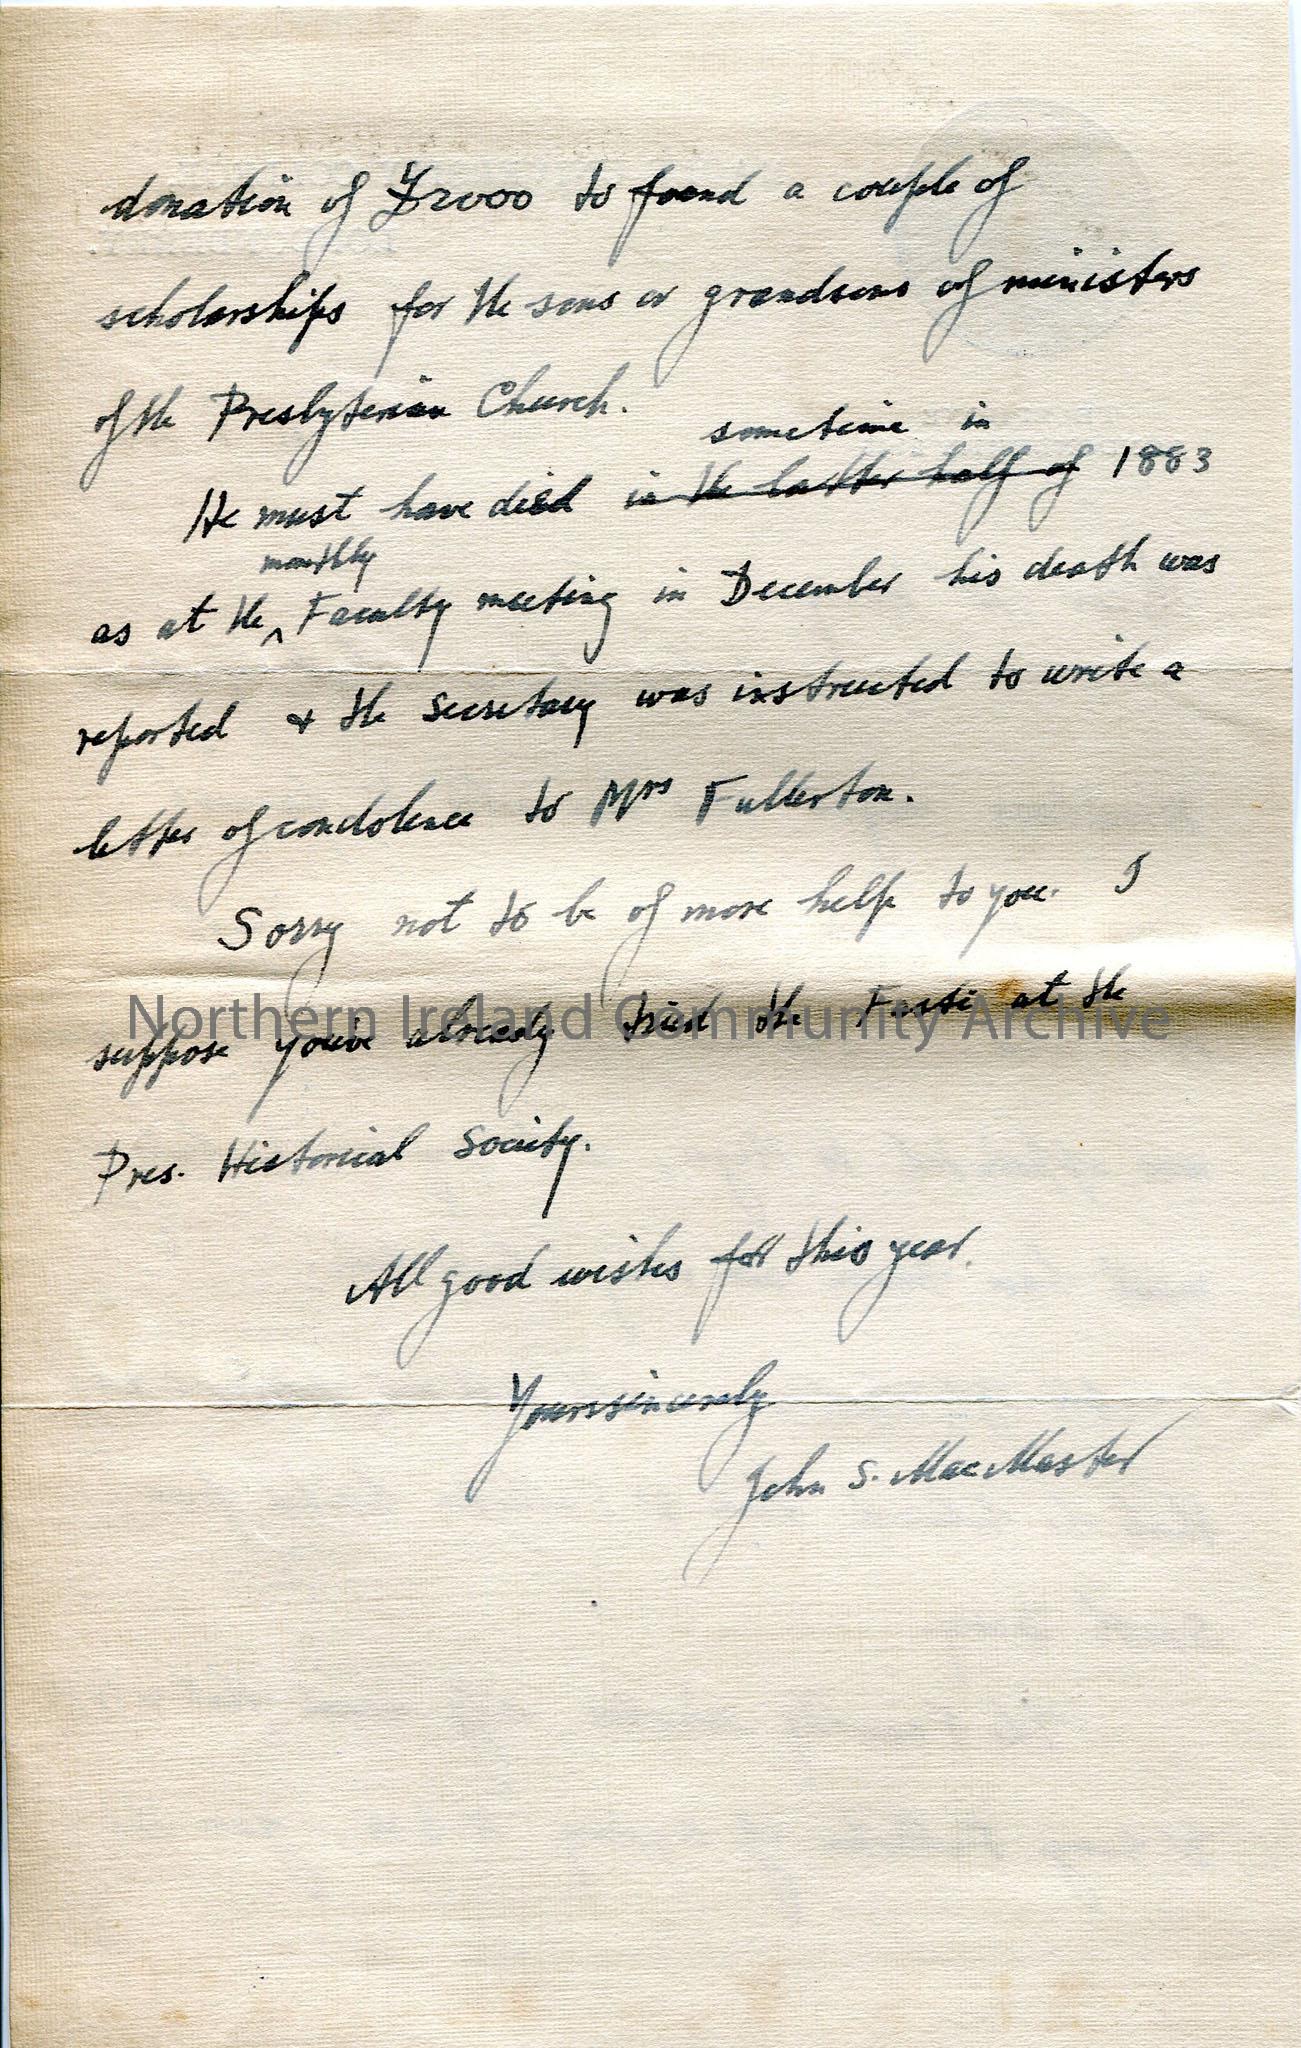 donation of £2000 to found a couple of
scholarships for the sons or grandsons of ministers
of the Presbyterian Church.
sometime in
He must have died in the latter half of 1883
monthly
as at the ^ Faculty meeting in December his death was
reported & the secretary was instructed to write a
letter of condolence to Mrs Fullerton.
Sorry not to be of more help to you. I
Northern Ireland Community Archive
suppose you've already tried the Fasti at the
Pres. Historical Society.
All good wishes for this year.
Yours sincerely
John S. MacMaster